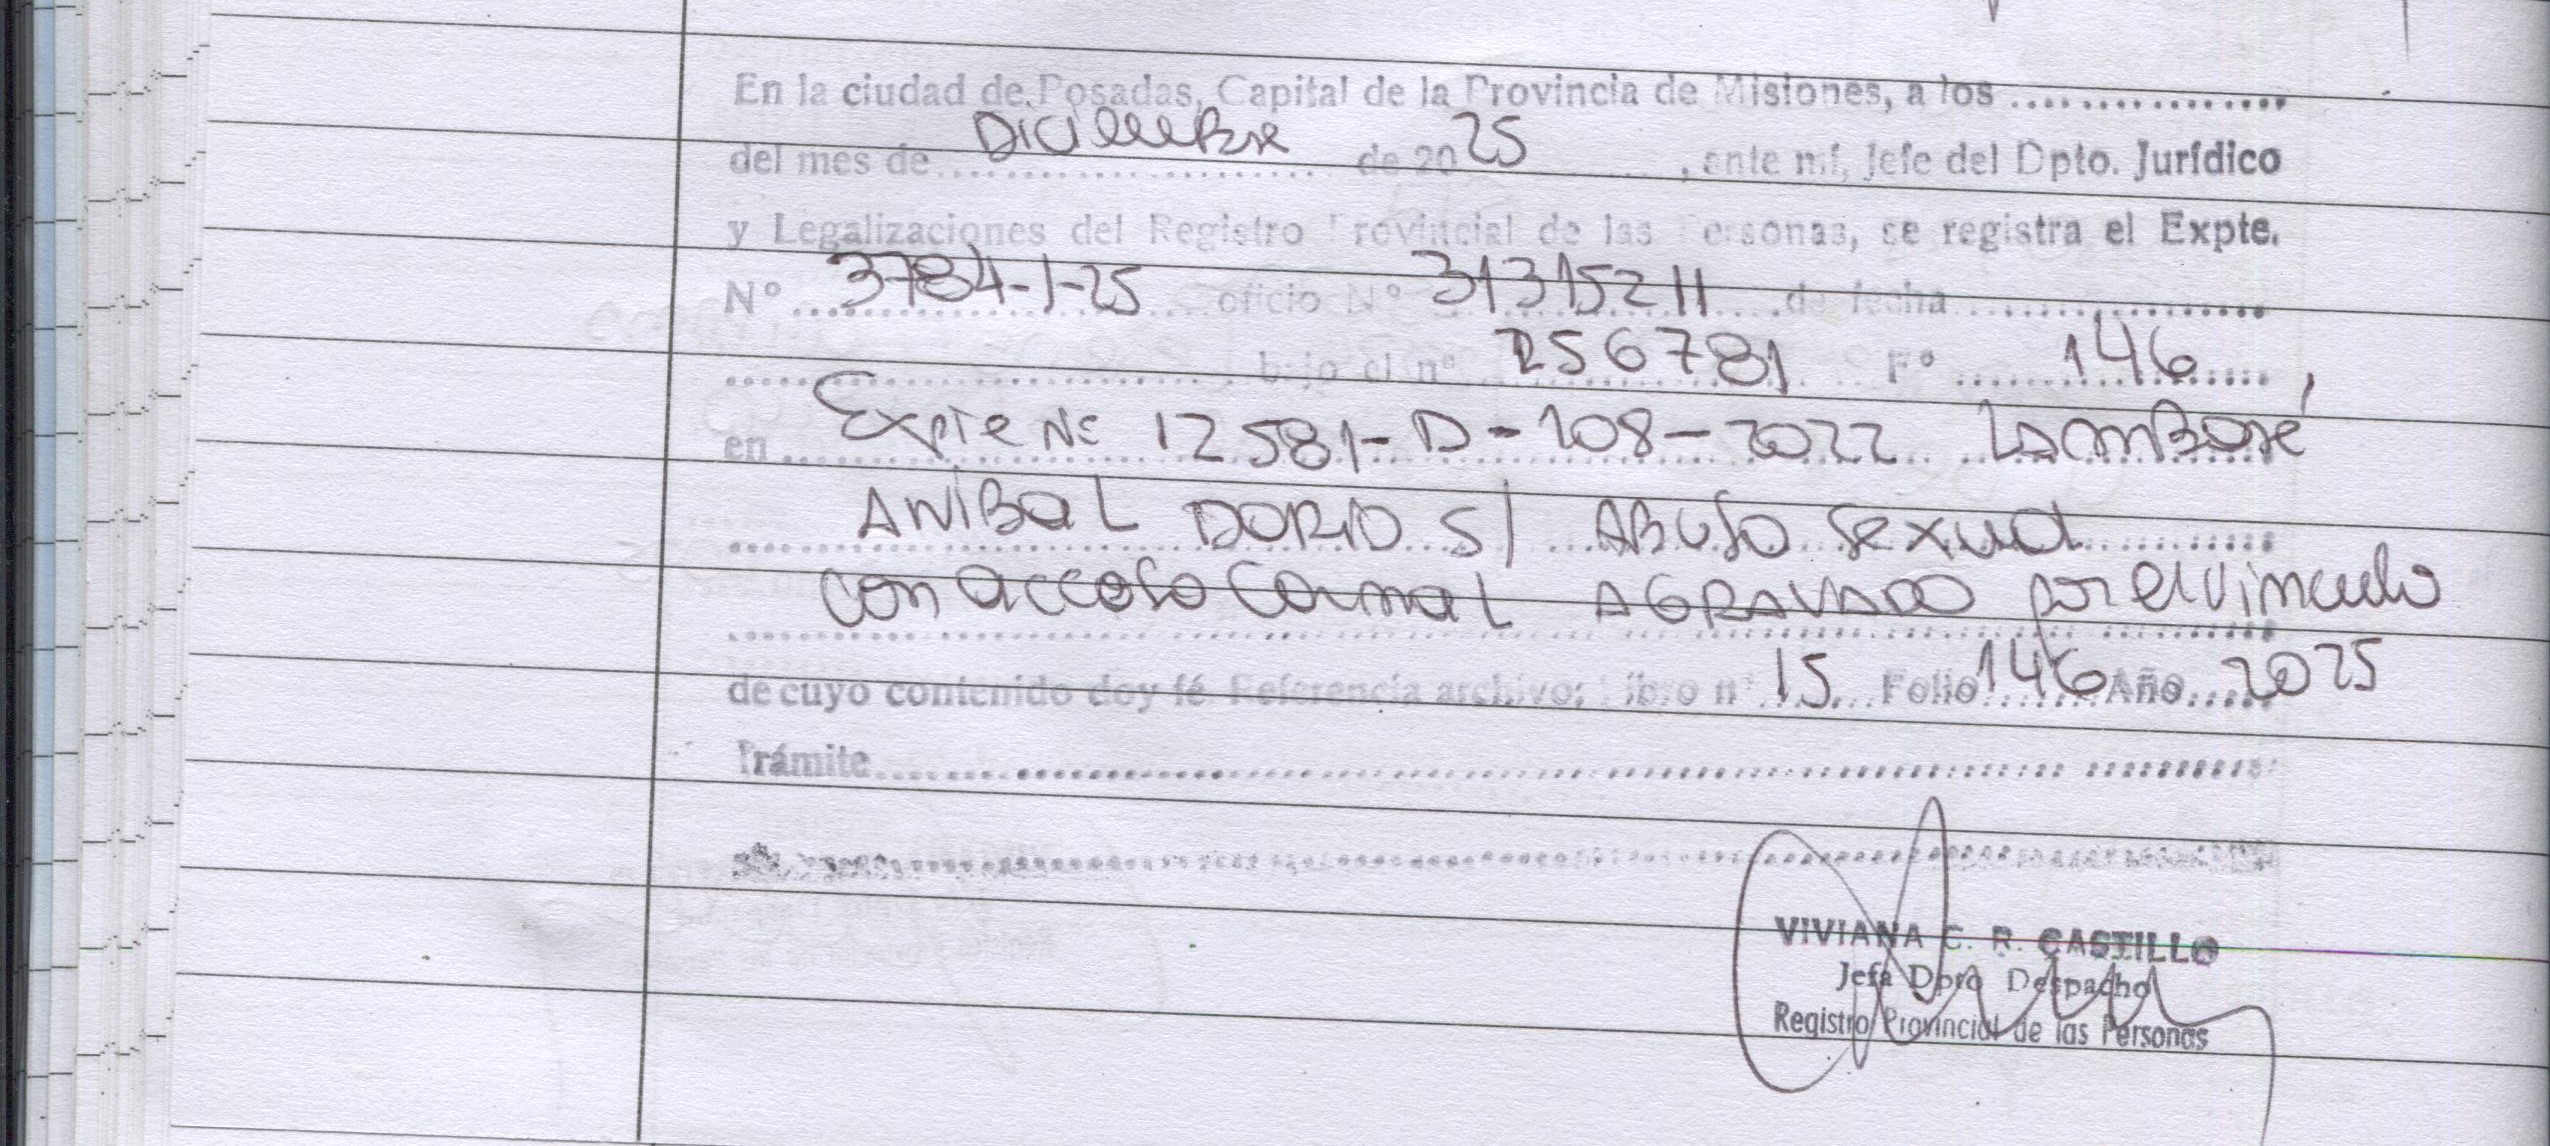 En la ciudad de Posadas, Capital de la Provincia de Misiones, a los ................
del mes de Diciembre de 2025, ante mí, Jefe del Dpto. Jurídico
y Legalizaciones del Registro Provincial de las Personas, se registra el Expte.
Nº 3784-1-25 oficio Nº 31315211 de fecha ................
................ bajo el nº 256781 Fº 146,
en Expte Nº 12581-D-108-2022
ANIBAL DORIO S/ ABUSO sexual
con acceso carnal AGRAVADO por el vinculo
de cuyo contenido doy fé Referencia archivo: Libro nº 15 Folio 146 Año 2025
Trámite ................
VIVIANA C. R. CASTILLO
Jefa Dpto Despacho
Registro Provincial de las Personas